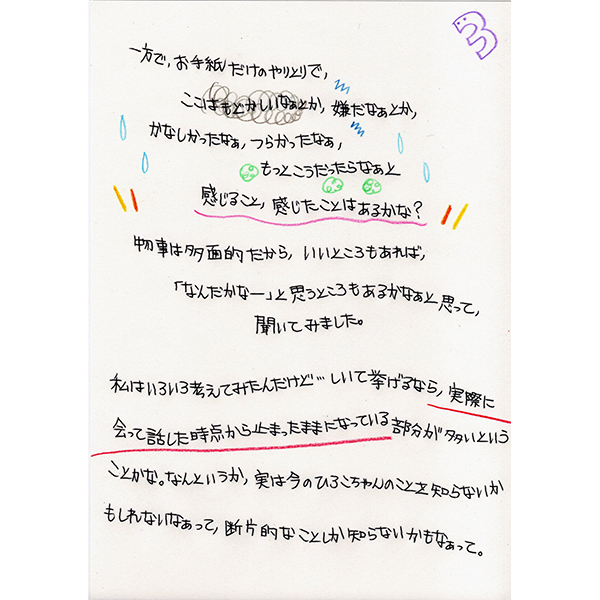 3
一方で，お手紙だけのやりとりで，
ここはもどかしいなぁとか，嫌だなぁとか，
かなしかったなぁ，つらかったなぁ，
もっとこうだったらなぁと
感じること，感じたことはあるかな？
物事は多面的だから，いいところもあれば，
「なんだかなー」と思うところもあるかなぁと思って，
聞いてみました。
私はいろいろ考えてみたんだけど…しいて挙げるなら，実際に
会って話した時点から止まったままになっている部分が多いという
ことかな。なんというか，実は今のひろこちゃんのことを知らないか
もしれないなぁって，断片的なことしか知らないかもなぁって。